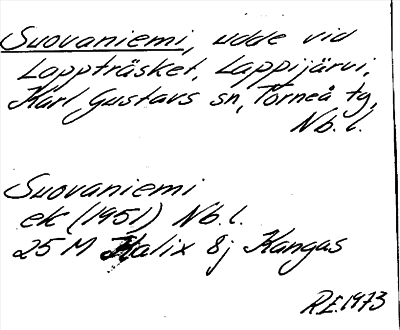 Suovaniemi, udde vid
Lappträsket, Lappijärvi,
Karl Gustavs sn, Torneå tg,
Nb.l.
Suovaniemi
ek (1951) Nb.l.
25 M Kalix 8j Kangas
R.E. 1973